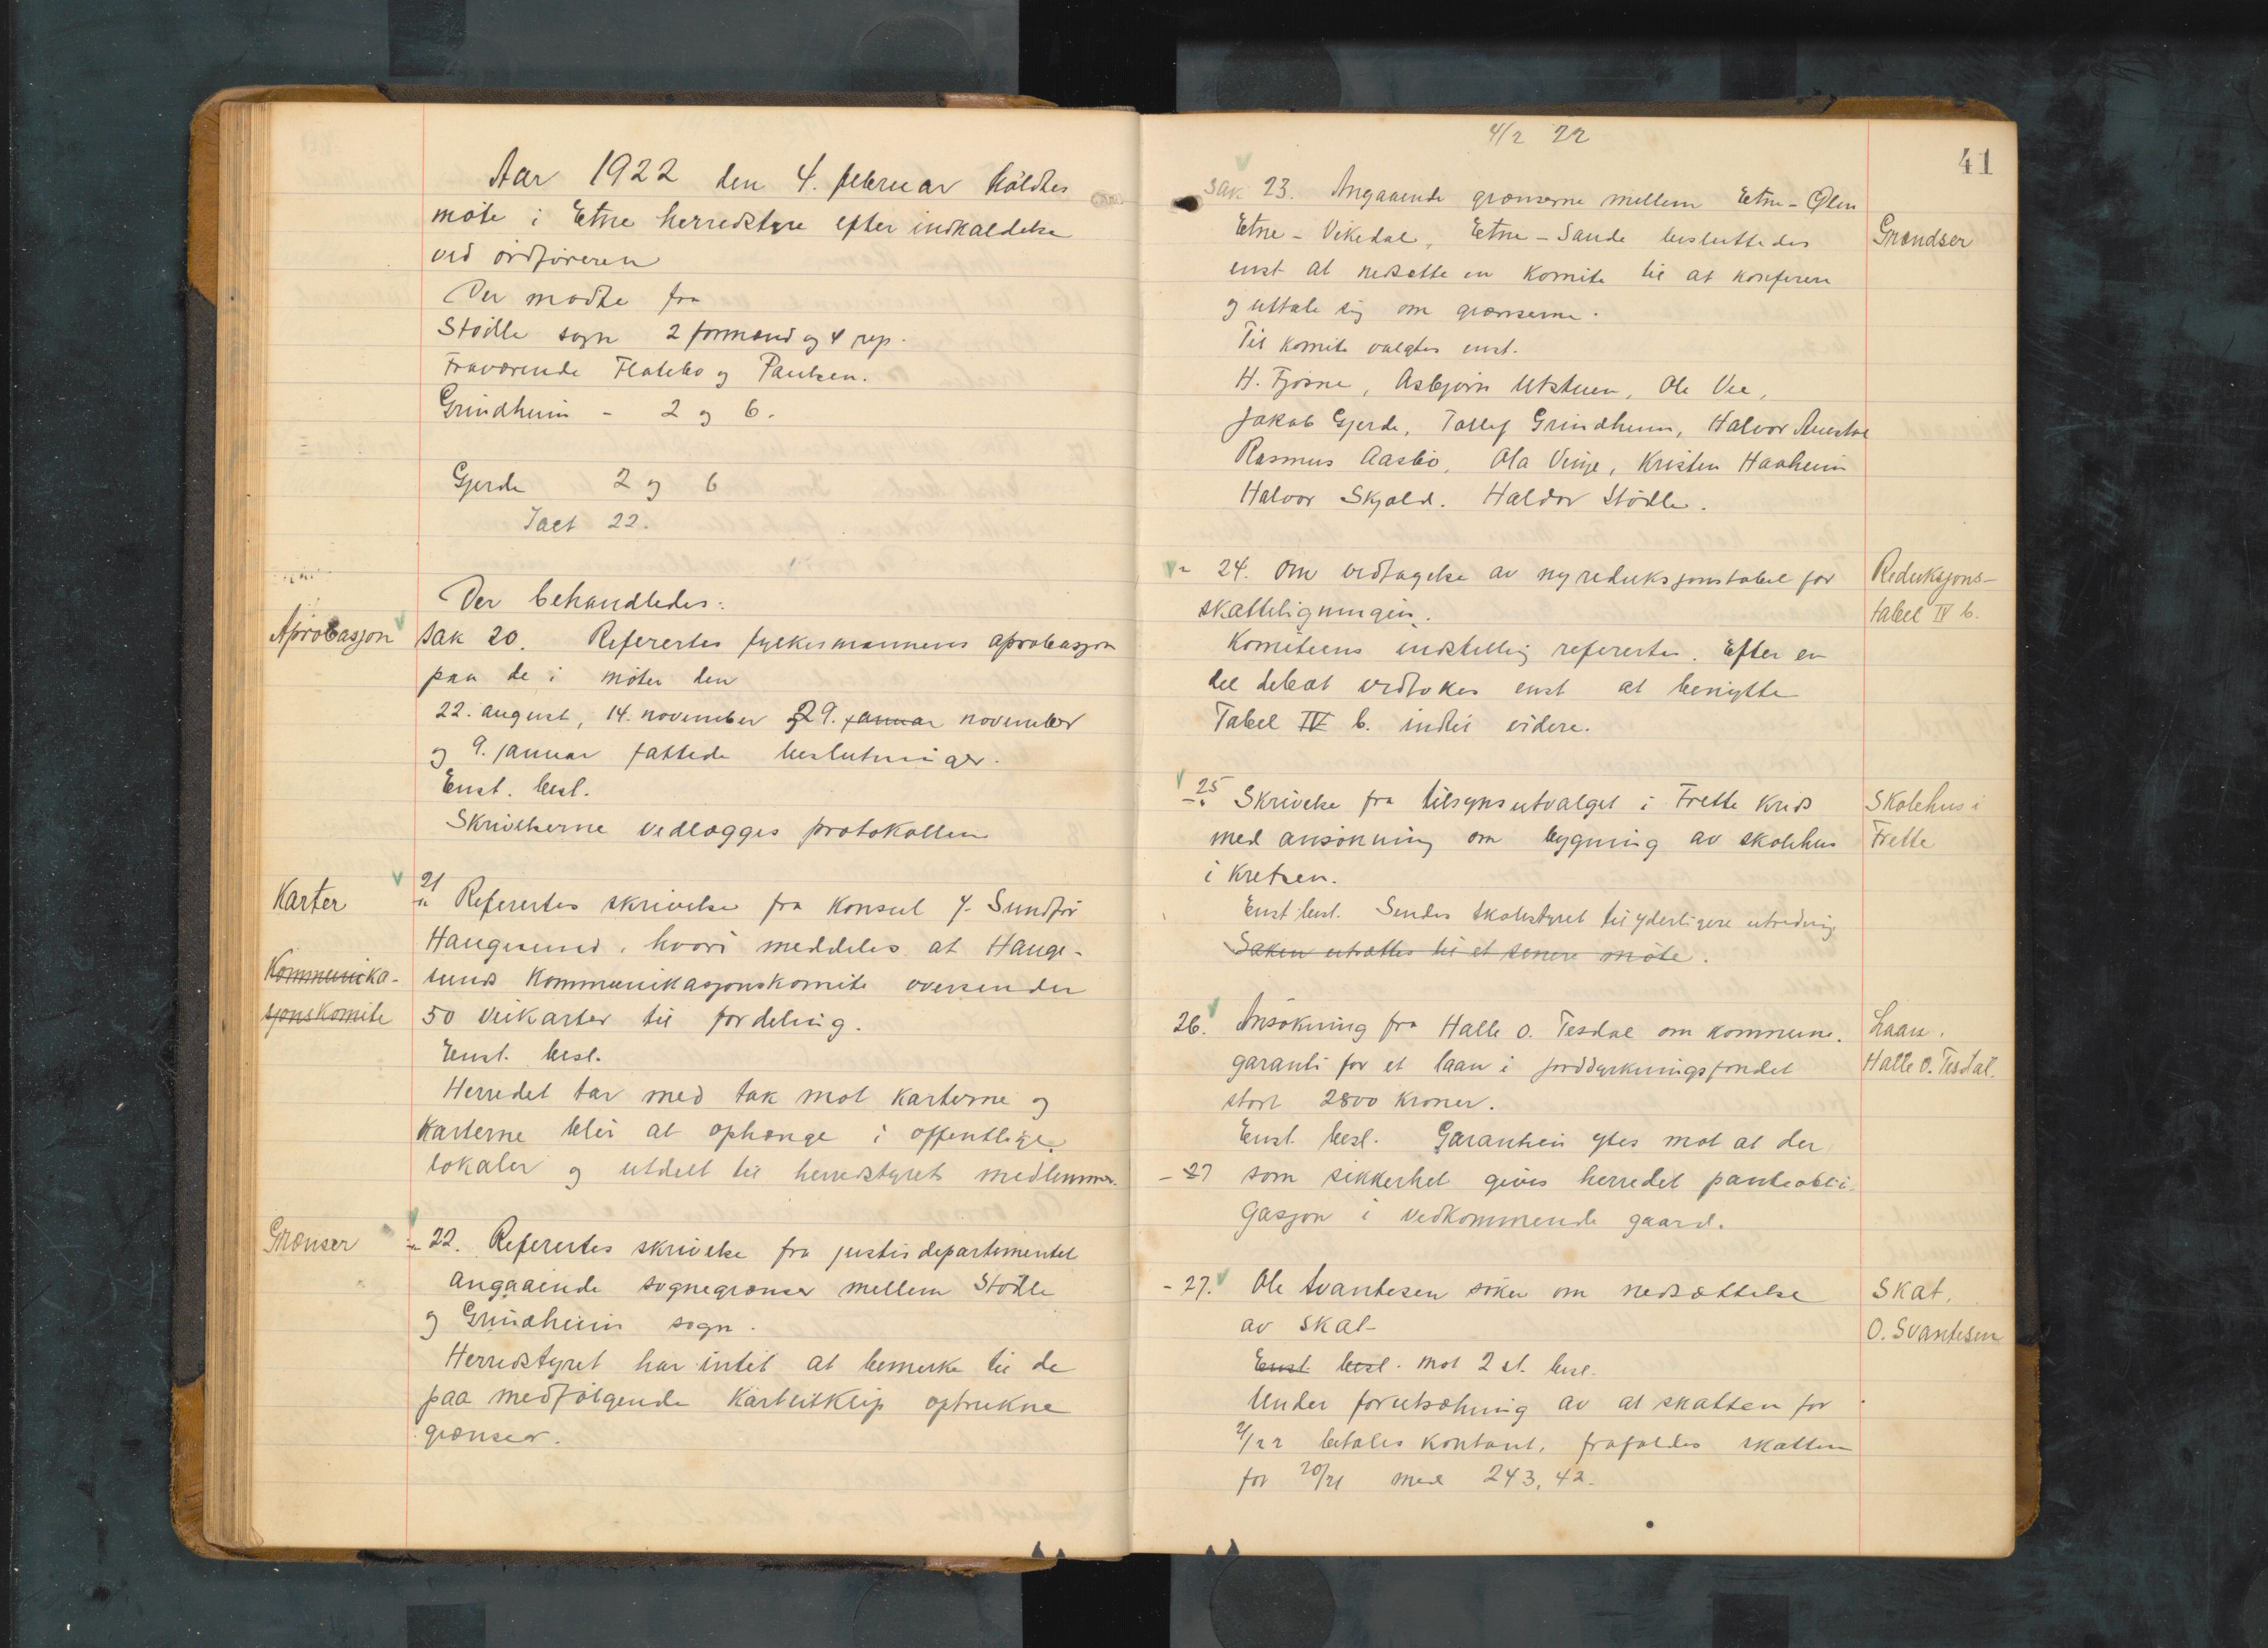 Aar 1922 den 4. februar holdtes
møte i Etne herredstyre efter indkaldelse
ved ordføreren
Der mødte fra
Stødle sogn 2 formænd og 4 rep.
Fraværende Flatebø og Paulsen.
Grindheim - 2 og 6.
Gjerde 2 og 6
Talt 22.
Der behandledes:
Aprobasjon
Sak 20. Refertes fylkesmannens aprobasjon
paa de i møter den
22. august, 14. november og 29. januar november
og 9. januar fattede beslutninger.
Enst. besl.
Skrivelserne vedlægges protokollen
Karter
21 Refertes skrivelse fra konsul Y. Sundfør
Haugesund, hvori meddeles at Hauge-
Kommunika-
sunds Kommunikasjonskomite oversender
sjonskomite
50 veikarter til fordeling.
Enst. besl.
Herredet tar med tak mot karterne og
karterne blir at ophænge i offentlige
lokaler og utdelt til herredstyrets medlemmer.
Grænser
" 22. Refertes skrivelse fra justisdepartementet
angaaende sognegrænser mellem Stødle
og Grindheim sogn.
Herredstyret har intet at bemerke til de
paa medfølgende kartutklip optrukne
grænser.
4/2 22
41
Sak 23. Angaaende grænserne mellem Etne - Ølen
Etne - Vikedal, Etne - Sande besluttedes
Grændser
enst at nedsætte en komite til at konferere
og uttale sig om grænserne.
Til komite valgtes enst.
H. Fjøsne, Asbjørn Utstuen, Ole Vee,
Jakob Gjerde, Tollef Grindheim, Halvor
Rasmus Aasbø, Ola Vinje, Kristen Haaheim
Halvor Skjold. Haldor Stødle.
" 24. Om vedtagelse av ny reduksjonstabel for
Reduksjons-
skatteligningen.
tabel IV b.
Komiteens indstilling refertes. Efter en
del debat vedtokes enst at benytte
Tabel IV b. indtil videre.
25 Skrivelse fra tilsynsutvalget i Frette kreds
Skolehus i
med ansøkning om bygning av skolehus
Frette
i kretsen.
Enst. besl. Sendes skolestyret til yderligere utredning
Saken utsættes til et senere møte.
26. Ansøkning fra Halle O. Tesdal om kommune-
Laan.
garanti for et laan i jorddyrkningsfondet
Halle O. Tesdal.
stort 2800 kroner.
Enst. besl. Garantien ytes mot at der
- 27 som sikkerhet gives herredet panteobli-
gasjon i vedkommende gaard.
- 27. Ole Svantesen søker om nedsættelse
Skat.
av skat-
O. Svantesen
Enst besl. mot 2 st. besl.
Under forutsætning av at skatten for
21/22 betales kontant, frafaldes skatten
for 20/21 med 243,42.